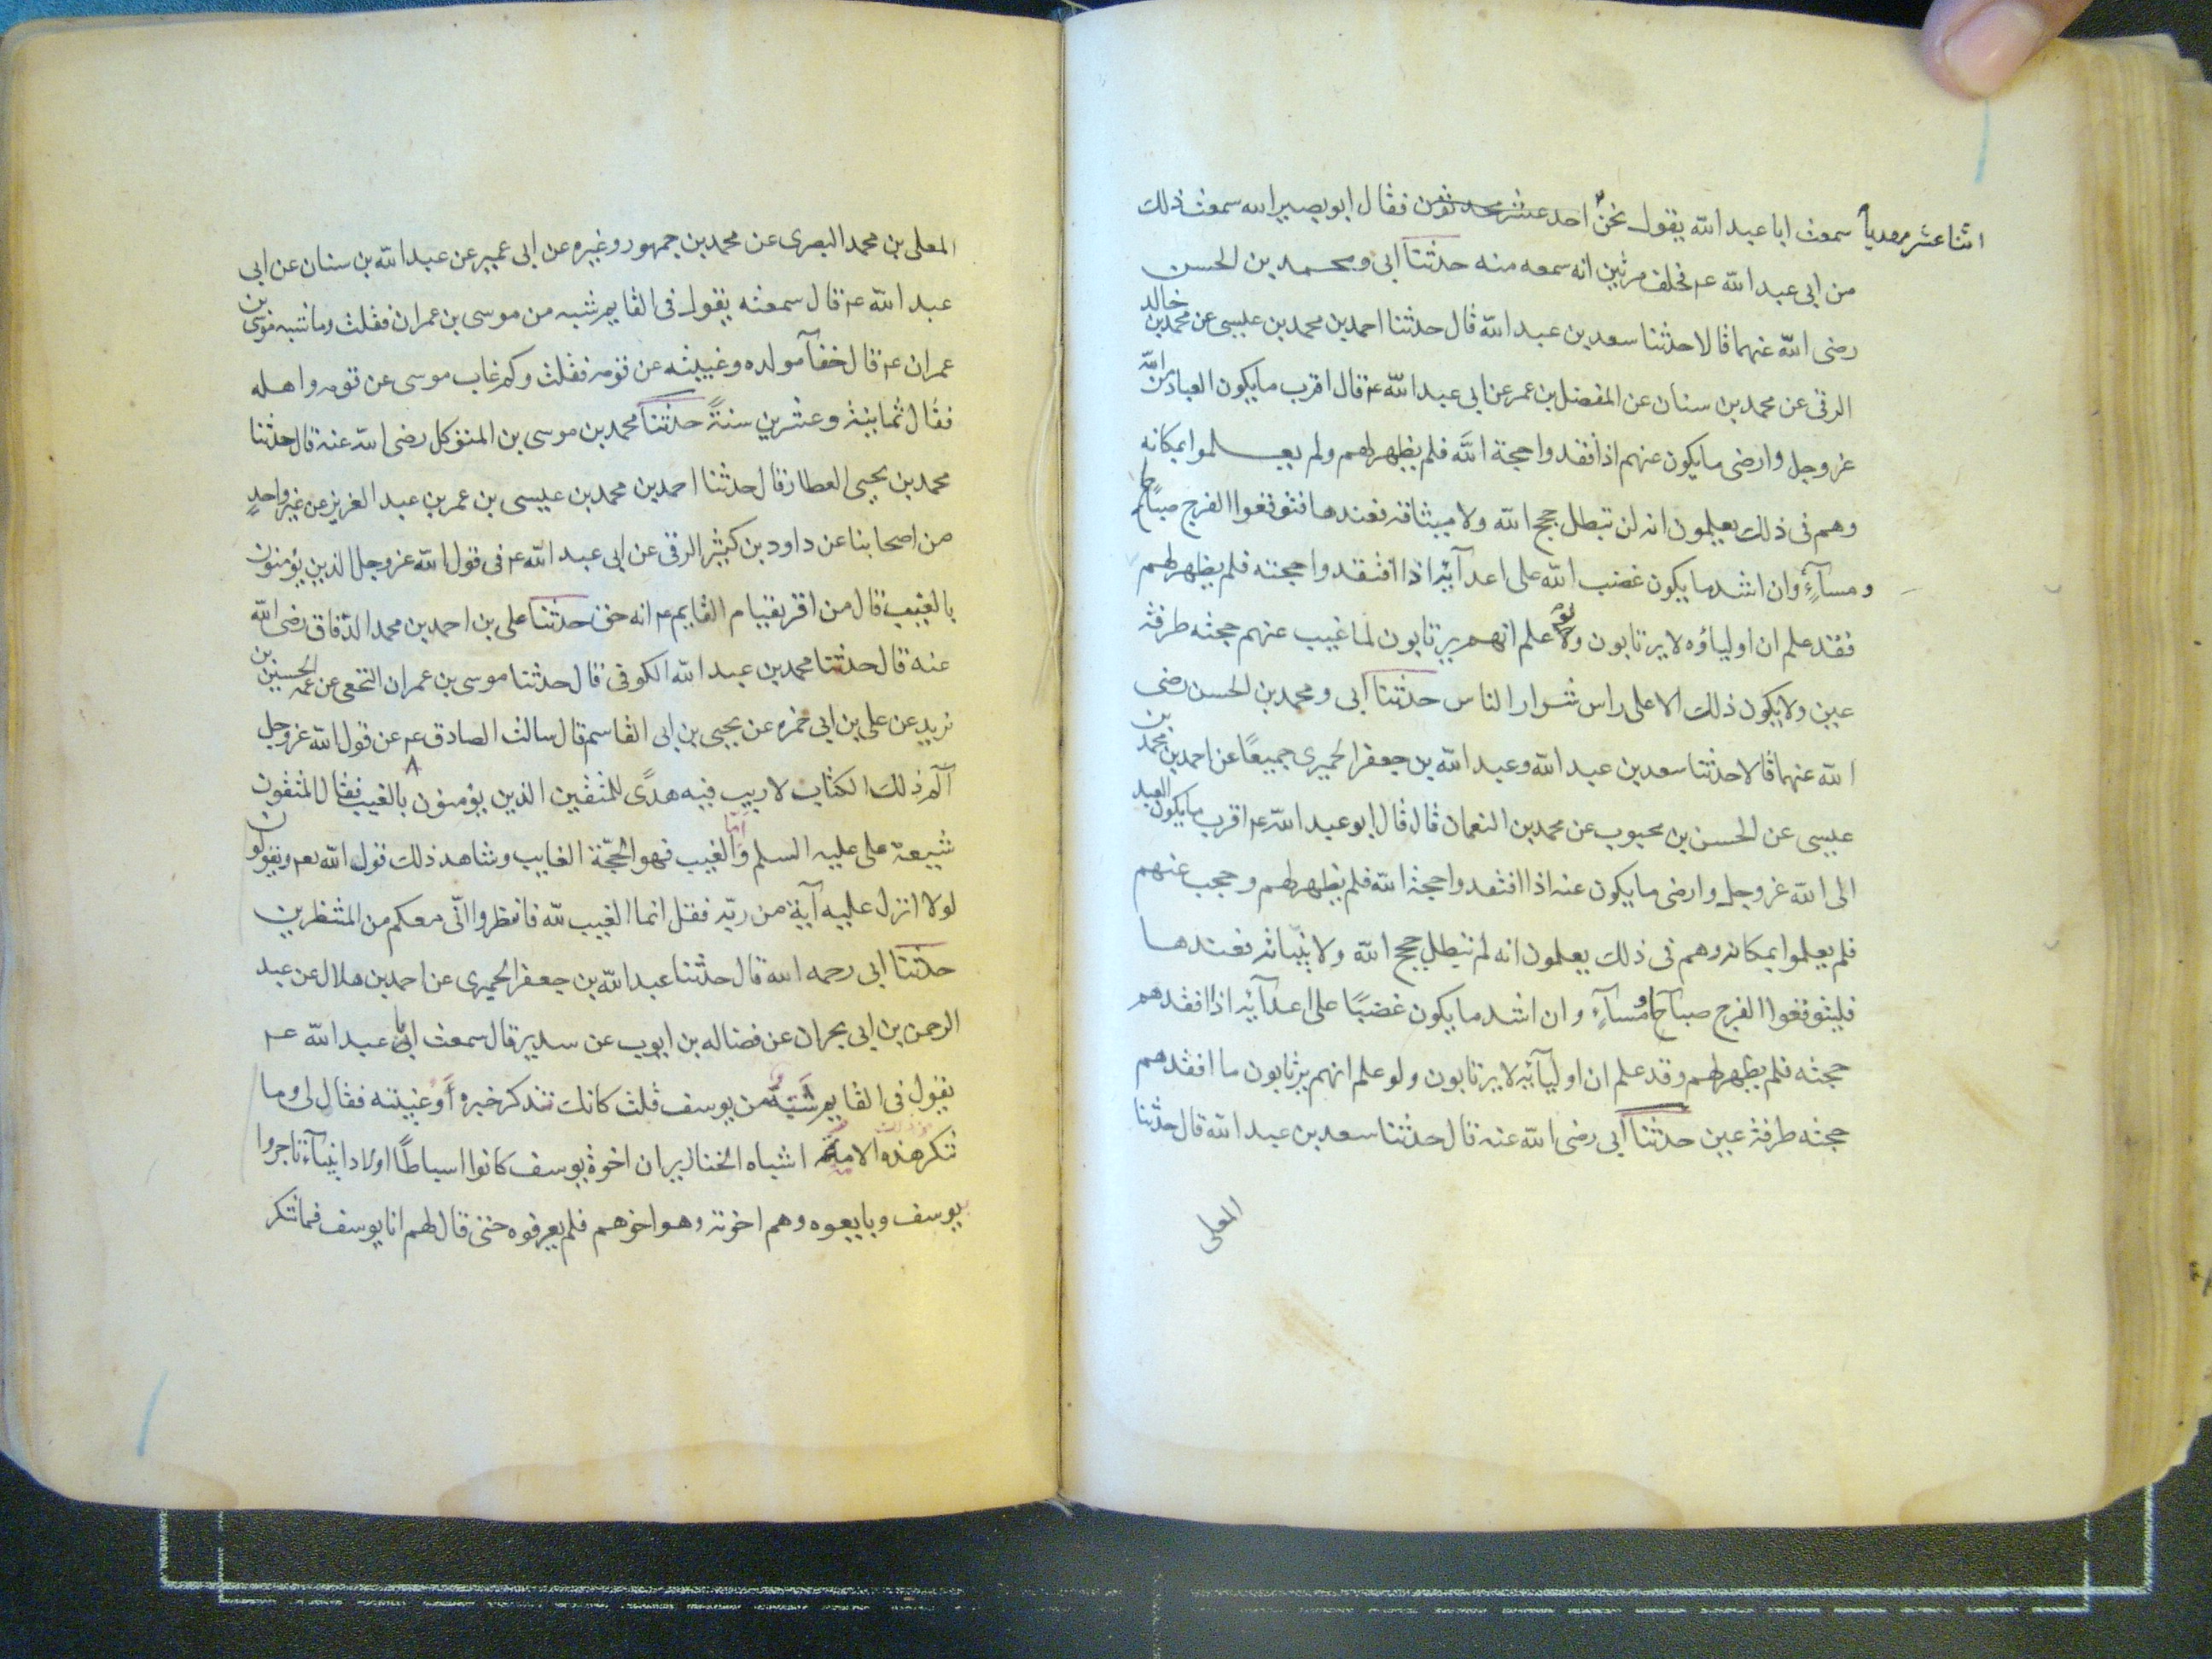 اثنا عشر مهدياً سمعت ابا عبد الله يقول نحن احد عشر محدثون فقال ابو بصير الله سمعت ذلك
من ابى عبد الله عم فحلف مرتين انه سمعه منه حدثنا ابى ومحمد بن الحسن
رضى الله عنهما قالا حدثنا سعد بن عبد الله قال حدثنا احمد بن محمد بن عيسى عن محمد بن خالد
البرقى عن محمد بن سنان عن المفضل بن عمر عن ابى عبد الله عم قال اقرب ما يكون العباد من الله
عز وجل وارضى ما يكون عنهم اذا فقدوا حجة الله فلم يظهر لهم ولم يعلموا بمكانه
وهم فى ذلك يعلمون انه لن تبطل حجج الله ولا ميثاقه فعندها فتوقعوا الفرج صباحا
ومسآءٍ وان اشد ما يكون غضب الله على اعدآئه اذا افتقدوا حجته فلم يظهر لهم
فقد علم ان اولياؤه لا يرتابون ولو علم انهم يرتابون لما غيب عنهم حجته طرفة
عين ولا يكون ذلك الا على راس شرار الناس حدثنا ابى ومحمد بن الحسن رضى
الله عنهما قالا حدثنا سعد بن عبد الله وعبد الله بن جعفر الحميرى جميعًا عن احمد بن محمد بن
عيسى عن الحسن بن محبوب عن محمد بن النعمان قال قال ابو عبد الله عم اقرب ما يكون العبد
الى الله عز وجل وارضى ما يكون عنه اذا افتقدوا حجة الله فلم يظهر لهم وحجب عنهم
فلم يعلموا بمكانه وهم فى ذلك يعلمون انه لم تبطل حجج الله ولا بيّناته فعندها
فليتوقعوا الفرج صباحا ومسآءٍ وان اشد ما يكون غضبًا على اعدآئه اذا افقدهم
حجته فلم يظهر لهم وقد علم ان اوليآئه لا يرتابون ولو علم انهم يرتابون ما افقدهم
حجته طرفة عين حدثنا ابى رضى الله عنه قال حدثنا سعد بن عبد الله قال حدثنا
المعلى
المعلى بن محمد البصرى عن محمد بن جمهور وغيره عن ابى عمير عن عبد الله بن سنان عن ابى
عبد الله عم قال سمعته يقول فى القايم شبه من موسى بن عمران فقلت وما شبه موسى بن
عمران عم قال خفآ مولده وغيبته عن قومه فقلت وكم غاب موسى عن قومه واهله
فقال ثمانية وعشرين سنةً حدثنا محمد بن موسى بن المتوكل رضى الله عنه قال حدثنا
محمد بن يحيى العطار قال حدثنا احمد بن محمد بن عيسى بن عمر بن عبد العزيز عن غير واحدٍ
من اصحابنا عن داود بن كثير الرقى عن ابى عبد الله عم فى قول الله عز وجل الذين يؤمنون
بالغيب قال من اقر بقيام القايم عم انه حق حدثنا على بن احمد بن محمد الدقاق رضى الله
عنه قال حدثنا محمد بن عبد الله الكوفى قال حدثنا موسى بن عمران النخعى عن عمه الحسين بن
يزيد عن على بن ابى حمزه عن يحيى بن ابى القاسم قال سالت الصادق عم عن قول الله عز وجل
آلم ذلك الكتاب لا ريب فيه هدًى للمتقين الذين يؤمنون بالغيب فقال المتقون
شيعة على عليه السلم واما الغيب فهو الحجّة الغايب وشاهد ذلك قول الله تعم ويقولون
لولا انزل عليه آية من ربّه فقل انما الغيب لله فانتظروا انّى معكم من المنتظرين
حدثنا ابى رحمه الله قال حدثنا عبد الله بن جعفر الحميرى عن احمد بن هلال عن عبد
الرحمن بن ابى نجران عن فضاله بن ايوب عن سدير قال سمعت ابا عبد الله عم
يقول فى القايم شبه من يوسف قلت كانك تذكر خبره او غيبته فقال لى وما
تنكر هذه الامة اشباه الخنازير ان اخوة يوسف كانوا اسباطًا اولاد انبيآء تاجروا
بيوسف وبايعوه وهم اخوته وهو اخوهم فلم يعرفوه حتى قال لهم انا يوسف فما تنكر